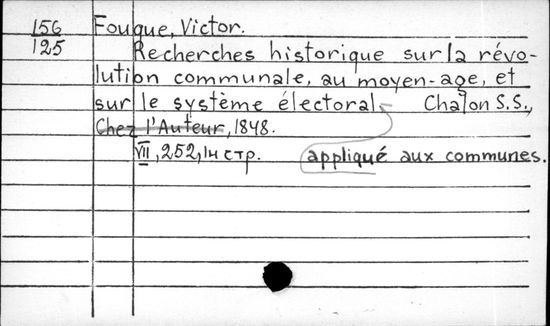 156 Fouque, Victor.
125 Recherches historique sur la révo-
lution communale, au moyen-age, et
sur le système électoral Chalon S.S.,
Chez l'Auteur, 1848.
VII, 252, 1н стр. appliqué aux communes.